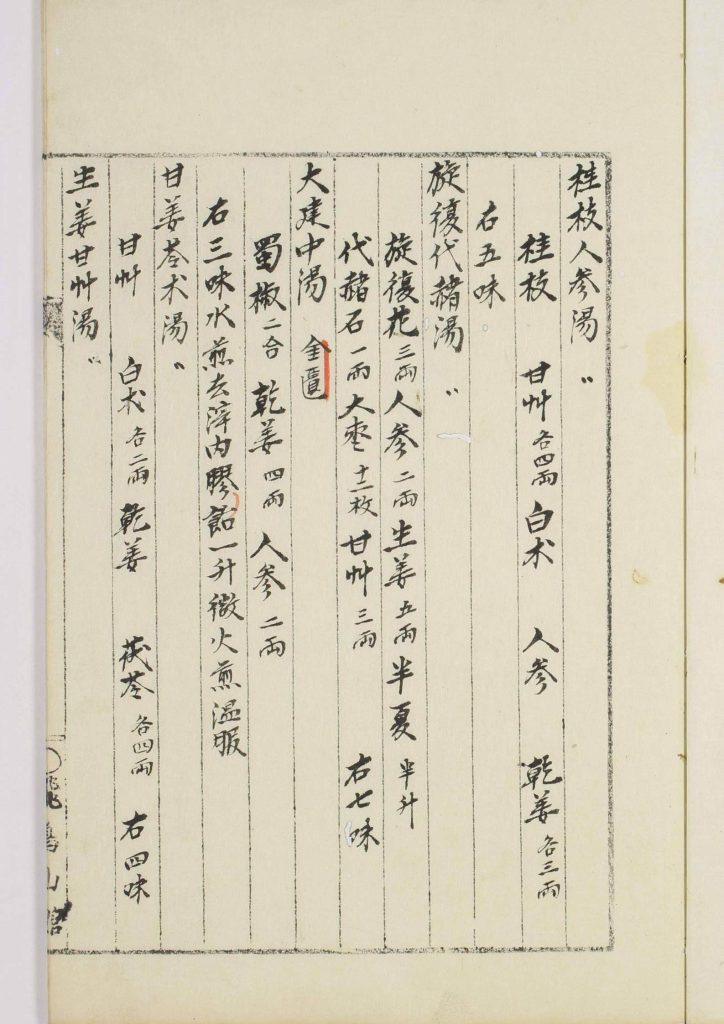 桂枝人参湯 〃
桂枝 甘艸 各四兩 白朮 人参 乾姜 各三兩
右五味
旋復代赭湯 〃
旋復花 三兩 人参 二兩 生姜 五兩 半夏 半升
代赭石 一兩 大棗 十二枚 甘艸 三兩 右七味
大建中湯 金匱
蜀椒 二合 乾姜 四兩 人参 二兩
右三味水煎去滓内膠飴一升微火煎温服
甘姜苓朮湯 〃
甘艸 白朮 各二兩 乾姜 茯苓 各四兩 右四味
生姜甘艸湯 〃